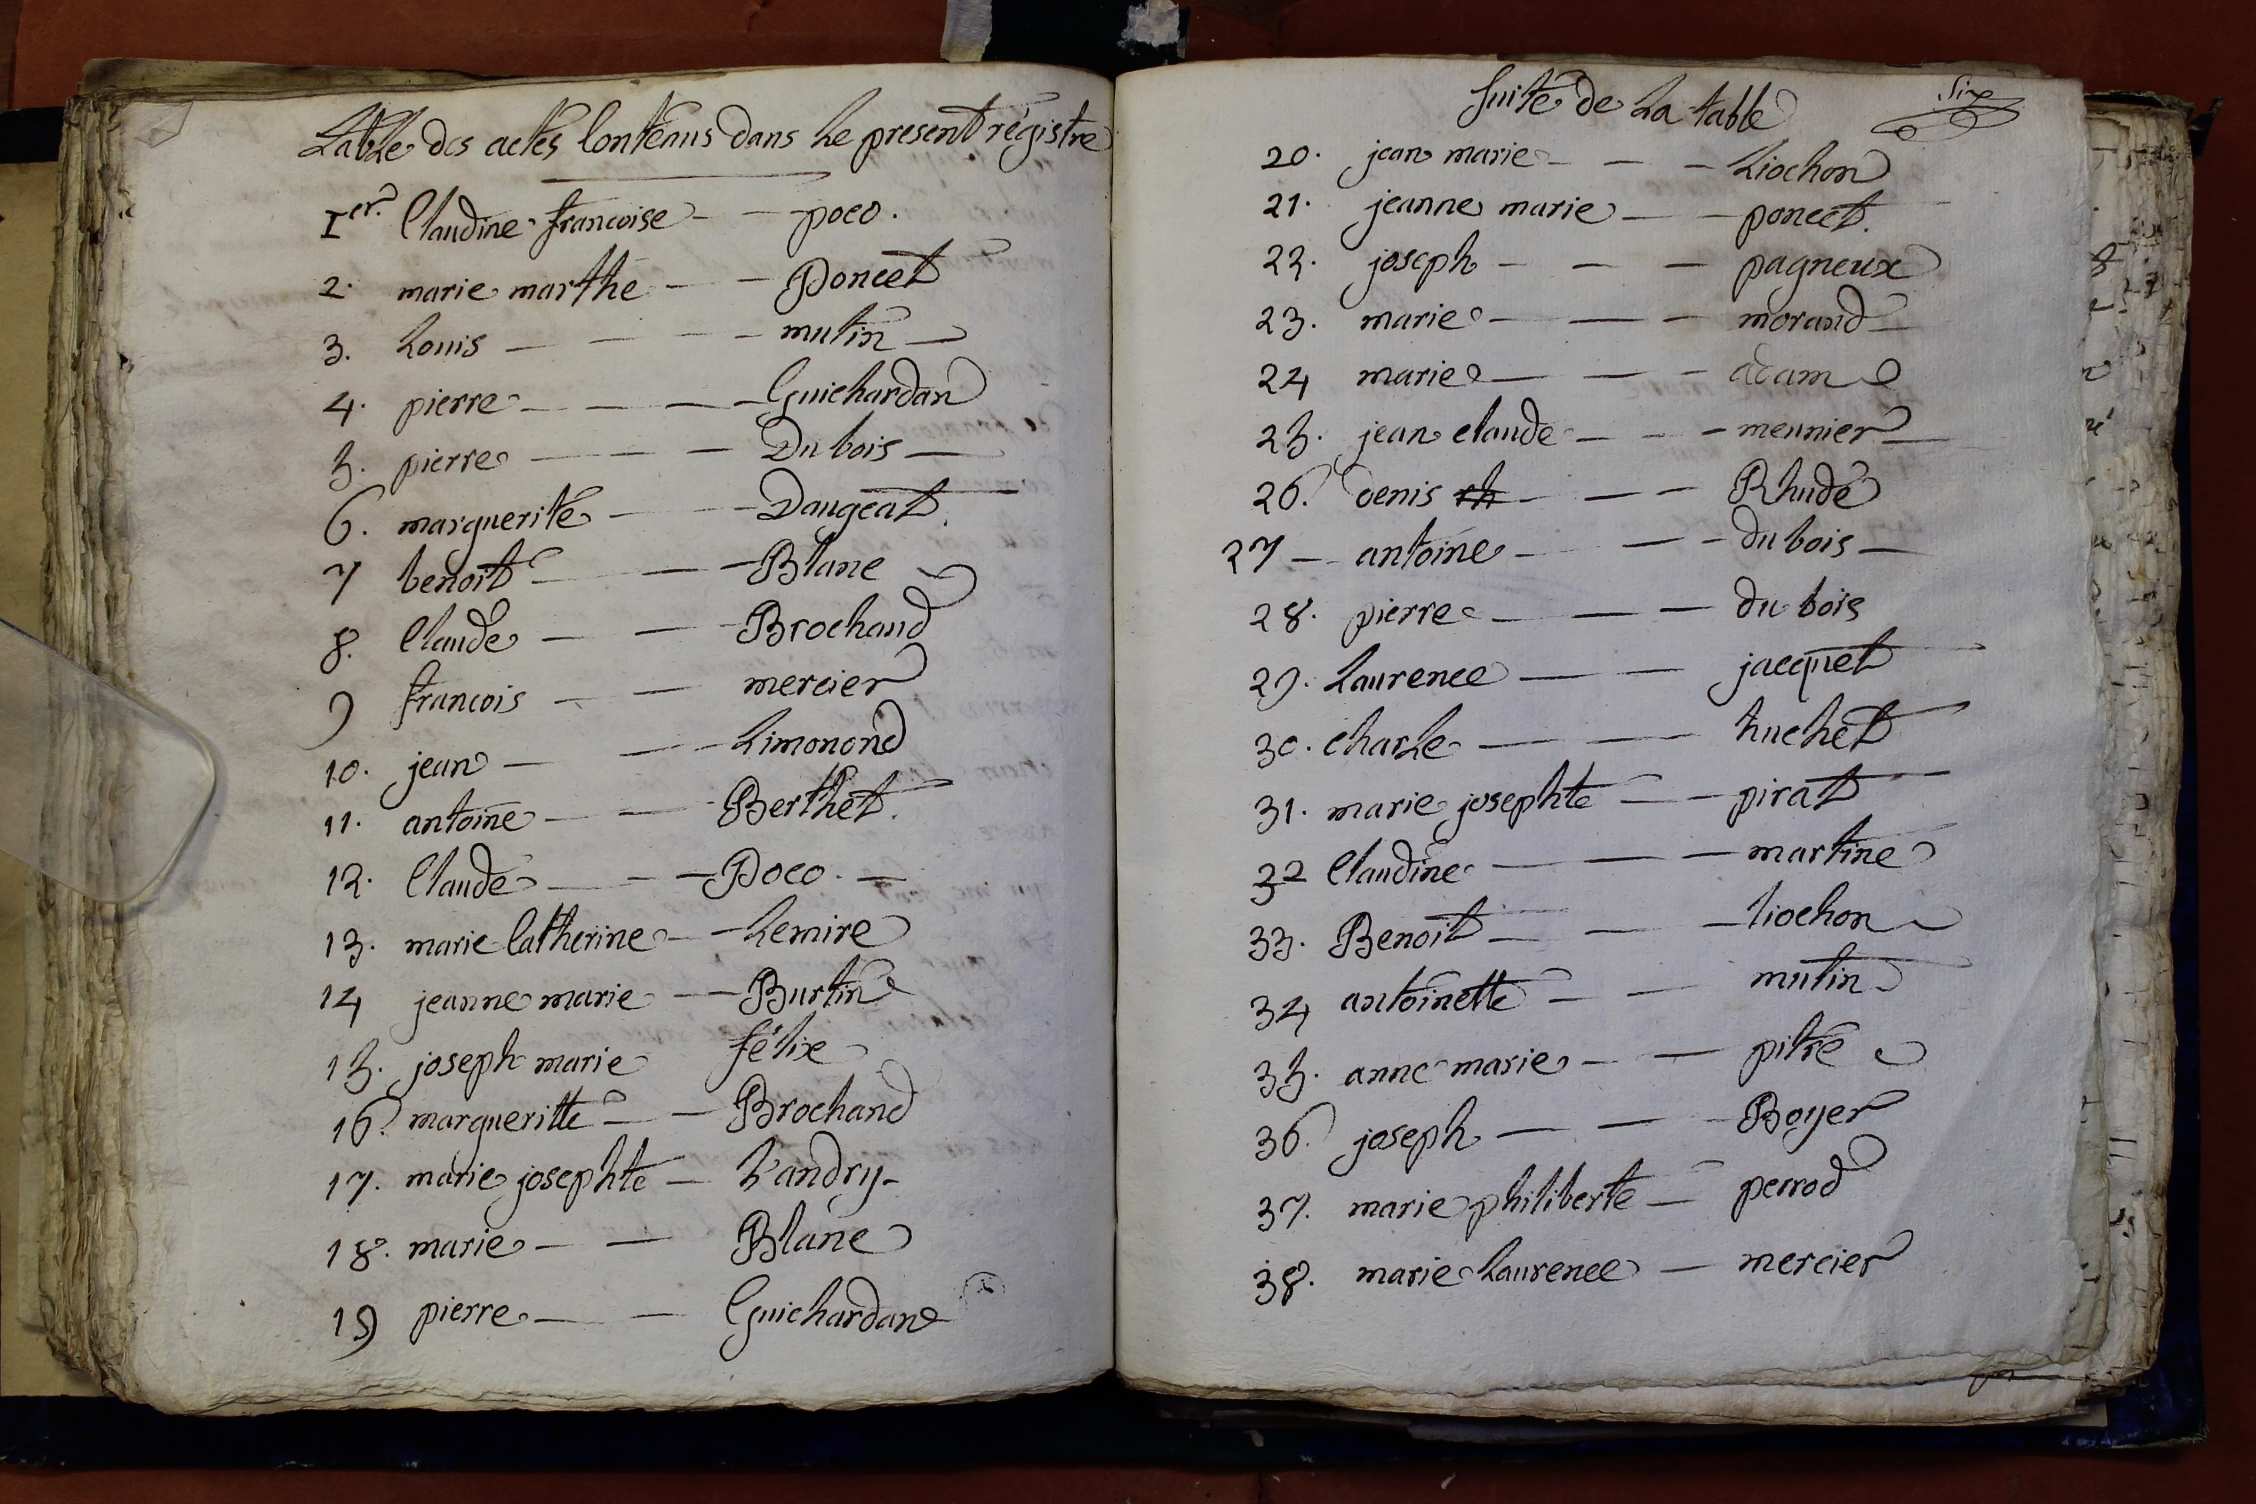 Table des actes Contenus dans Le present régistre
1er. Claudine francoise - - poco.
2. marie marthe - - Poncet
3. Louis - - - - mutin -
4. pierre - - - - Guichardan
5. pierre - - - - Du bois -
6. marguerite - - Daugeat.
7 benoit - - - Blanc
8. Claude - - - Brochand
9 francois - - mercier
10. jean - - - Limonond
11. antoine - - - Berthet.
12. Claude - - - Poco. -
13. marie Catherine - - Lemire
14 jeanne marie - - Burtin
15. joseph marie félix
16. margueritte - - Brochand
17. marie josephte - Landry -
18. marie - - Blanc
19 pierre - - Guichardan
Suite de La table
Six
20. jean marie - - - Liochon
21. jeanne marie - - poncet.
22. joseph - - - pagneux
23. marie - - - morand -
24 marie - - - adam
25. jean claude - - - meunier -
26. denis rh - - - Rhudé
27 - antoine - - - du bois -
28. pierre - - - du bois
29. Laurence - - jacquet
30. charLe - - - huchet
31. marie josephte - - pirat
32 Claudine - - - martine
33. Benoit - - - liochon
34 antoinette - - mutin
35. anne marie - - pitre
36. joseph - - - Boyer
37. marie philiberte - perrod
38. marie Laurence - mercier